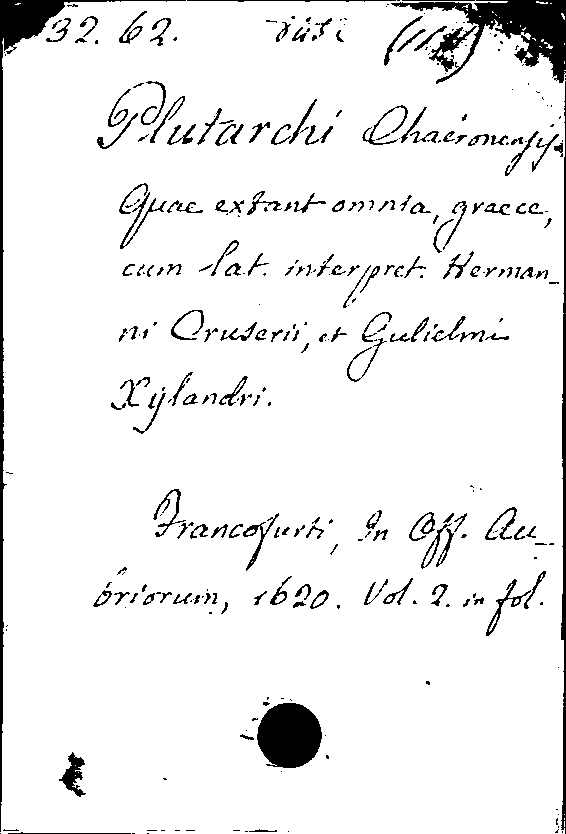 32. 62.
Plutarchi Chaeronensis.
Quae extant omnia, graece,
cum lat. interpret. Herman_
ni Cruserii, et Gulielmi
Xylandri.
Francofurti, In Off. Au_
briorum, 1620. Vol. 2. in fol.